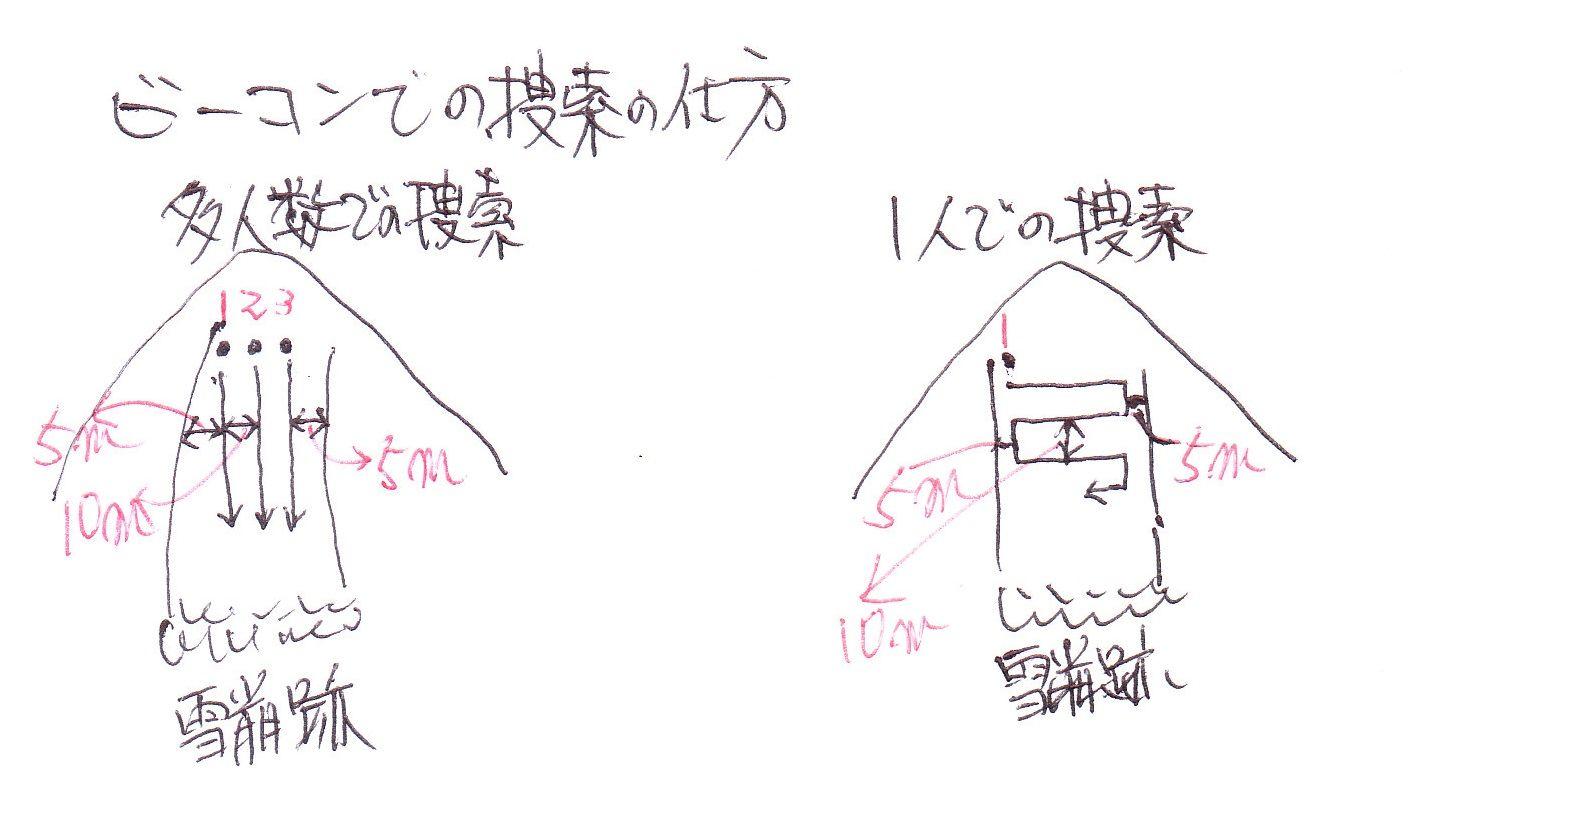 ビーコンでの捜索の仕方
多人数での捜索
1 2 3
5m
10m
5m
雪崩跡
1人での捜索
1
5m
5m
10m
雪崩跡